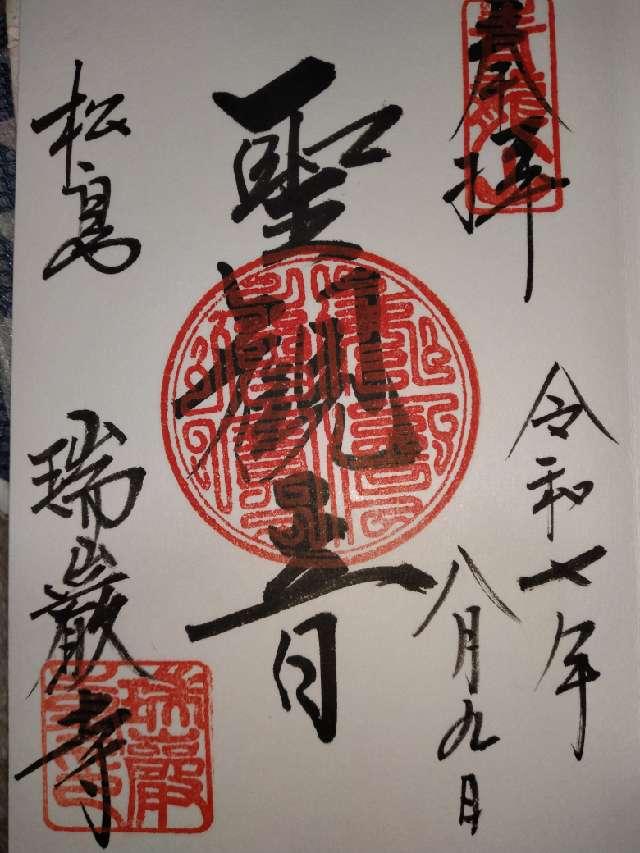 奉拝
令和七年
八月九日
聖観音
松島
瑞巌寺
瑞巌